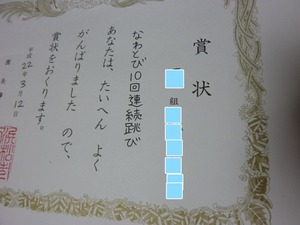 賞状
組
なわとび10回連続跳び
あなたは、たいへん よく
がんばりました ので、
賞状をおくります。
平成22年3月12日
園長